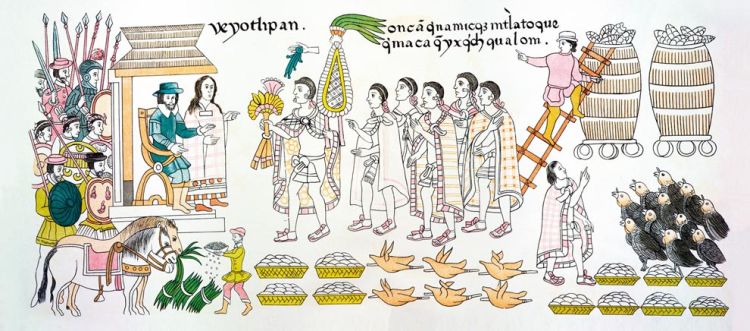 veyotlipan.
oncã q̃namicqȝ intlatoque
q̃maca q̃yxq̃ch qualoni.